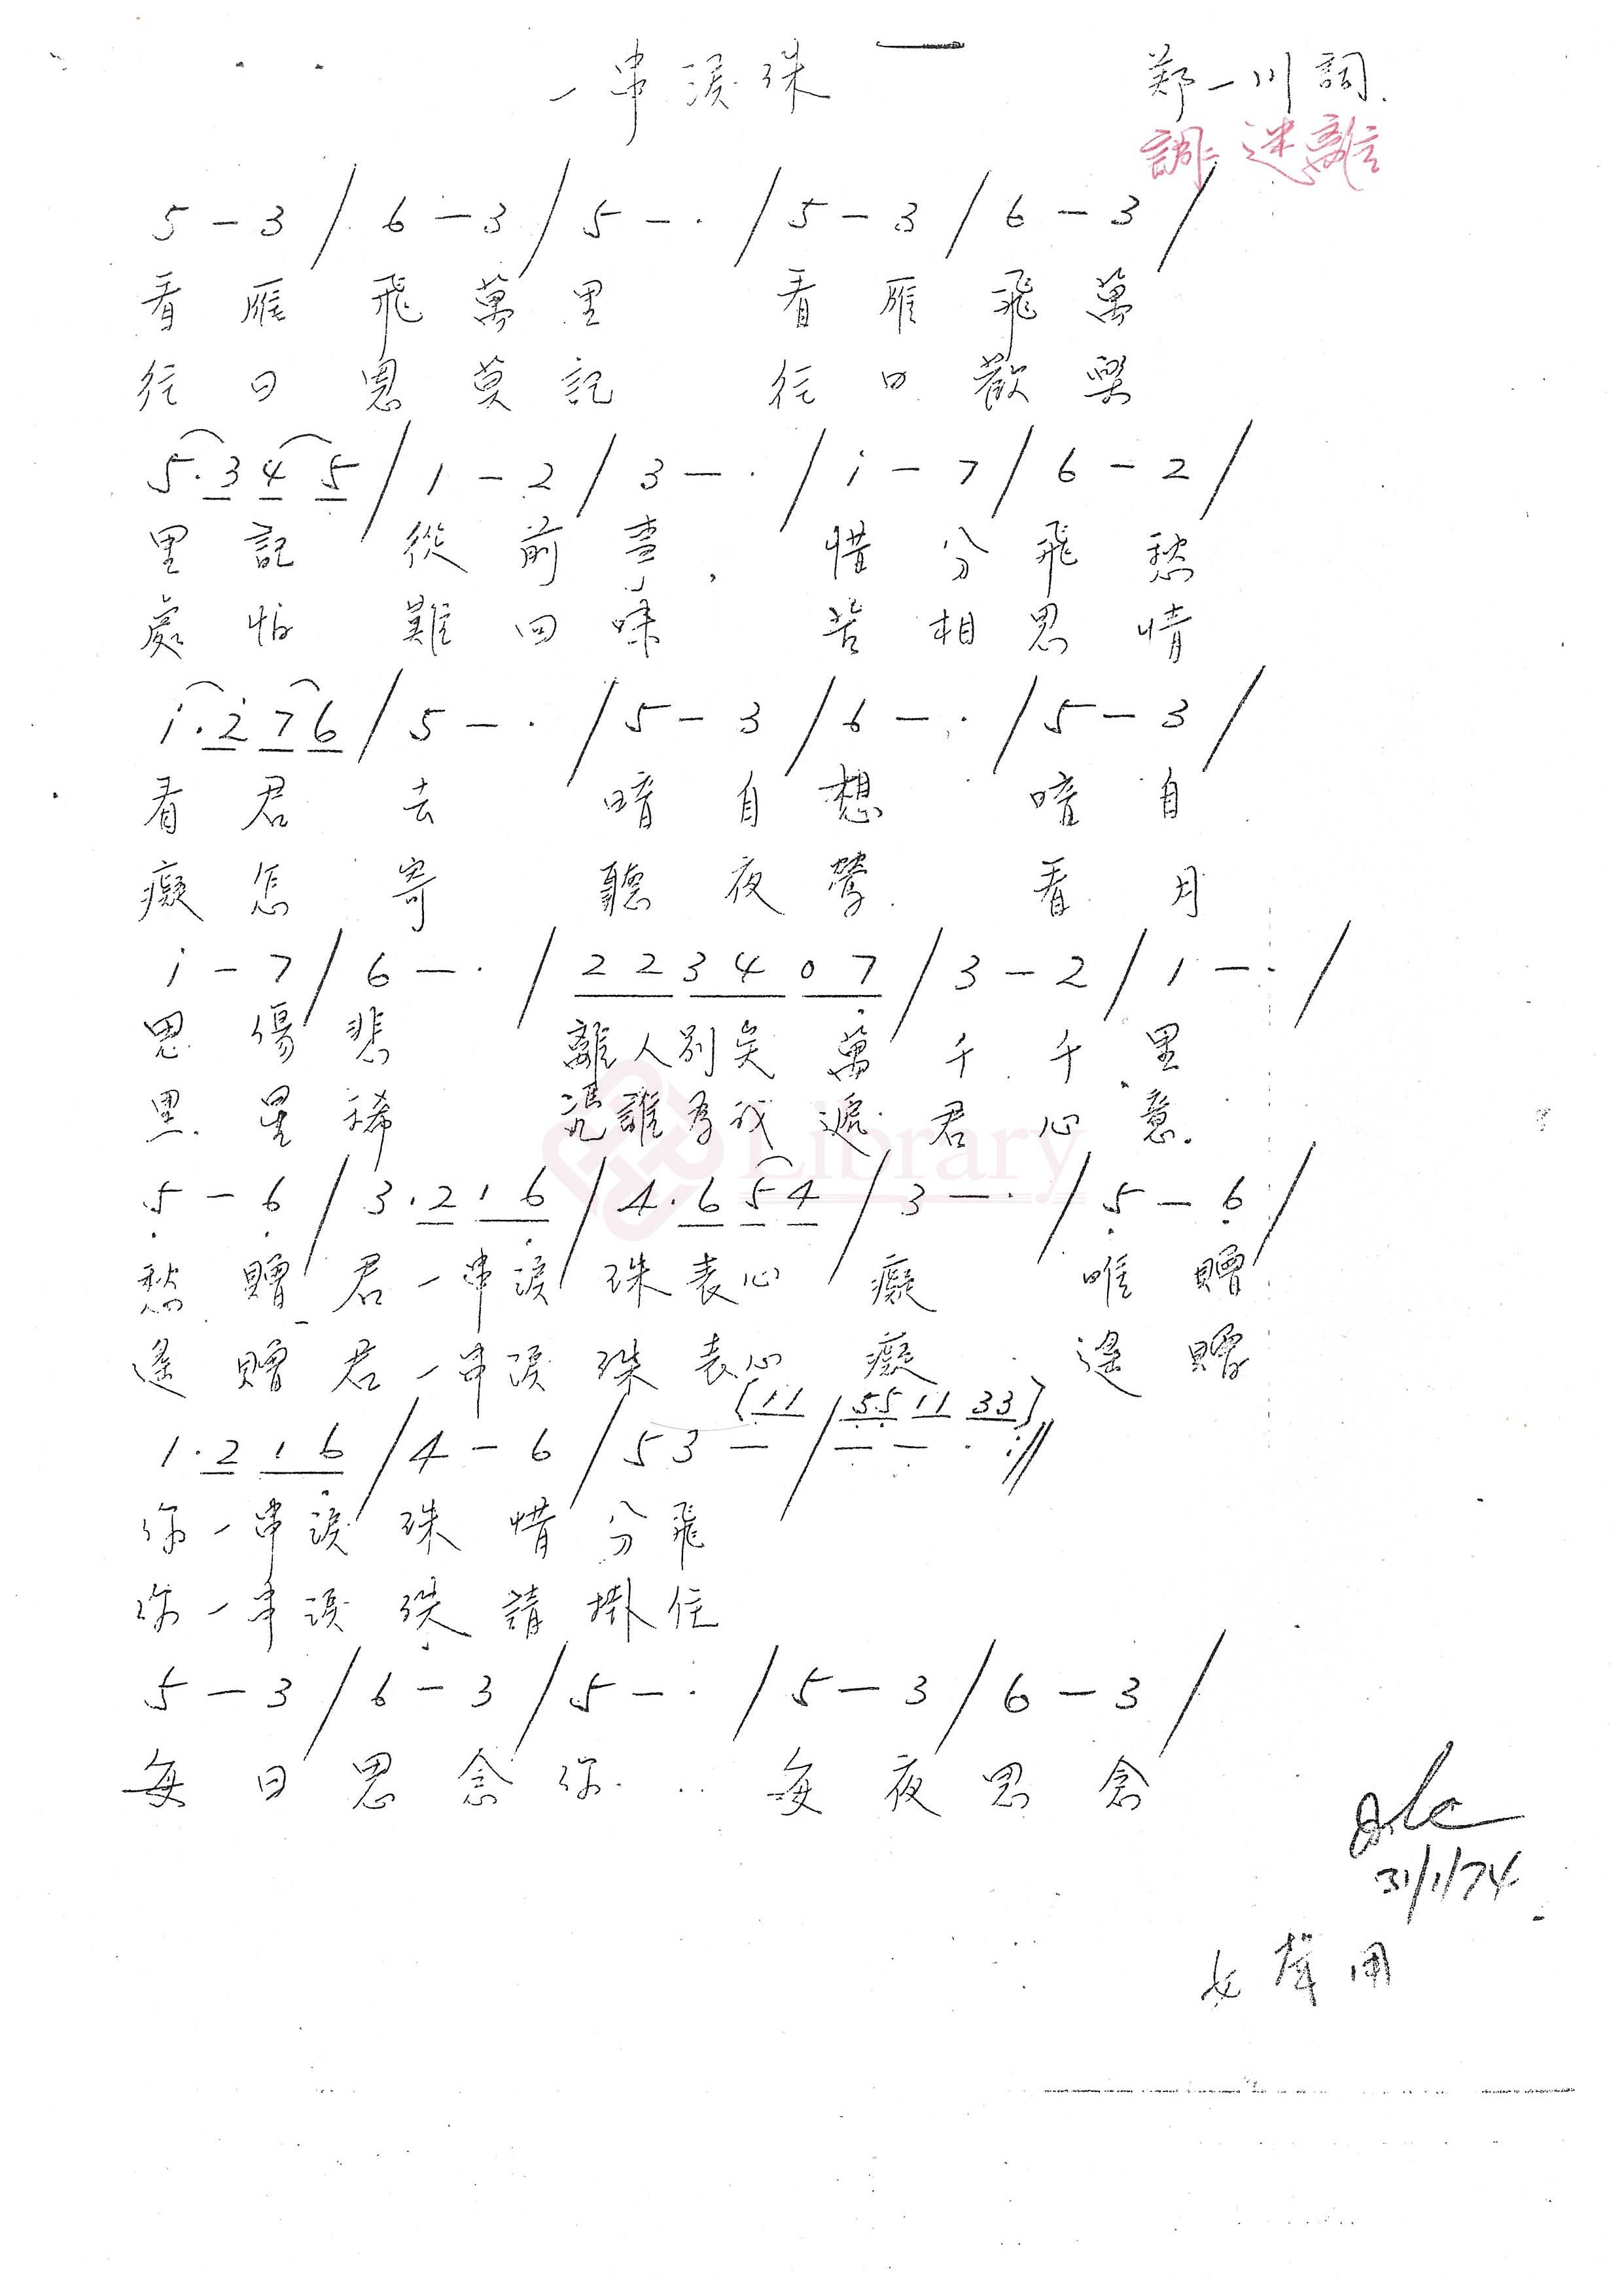 一串淚珠
郑一川詞
調:迷離
5 - 3 / 6 - 3 / 5 - · / 5 - 3 / 6 - 3 /
看雁飛萬里 看雁飛萬
往日恩莫記 往日歡樂
5·3 4 5 / 1 - 2 / 3 - · / i - 7 / 6 - 2 /
里記從前事, 惜分飛愁
處怕難回味 苦相思情
i·2̇ 7 6 / 5 - · / 5 - 3 / 6 - · / 5 - 3 /
看君去 暗自想 暗自
癡怎寄 聽夜鶯 看月
i - 7 / 6 - · / 2 2 3 4 0 7̣ / 3 - 2 / 1 - · /
思傷悲 離人別矣萬千千里
黑星稀 憑誰為我遞君心意.
5̣ - 6̣ / 3·2 1 6̣ / 4·6 5 4 / 3 - · / 5̣ - 6̣ /
愁贈君一串淚珠表心癡 唯贈
遙贈君一串淚珠表心癡 遙贈
(11 / 5̣5̣ 11 33)
1·2 1 6̣ / 4 - 6 / 5 3 - / - - · ://
你一串淚珠惜分飛
你一串淚珠請掛住
5 - 3 / 6 - 3 / 5 - · / 5 - 3 / 6 - 3 /
每日思念你.. 每夜思念
31/1/74
女聲用
Library